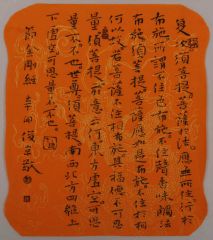 復次須菩提菩薩於法應無所住行於
布施所謂不住色布施不住聲香味觸法
布施須菩提菩薩應如是布施不住於相
何以故若菩薩不住相布施其福德不可思
量須菩提於意云何東方虛空可思
量不不也世尊須菩提南西北方四維上
下虛空可思量不不也
節金剛經